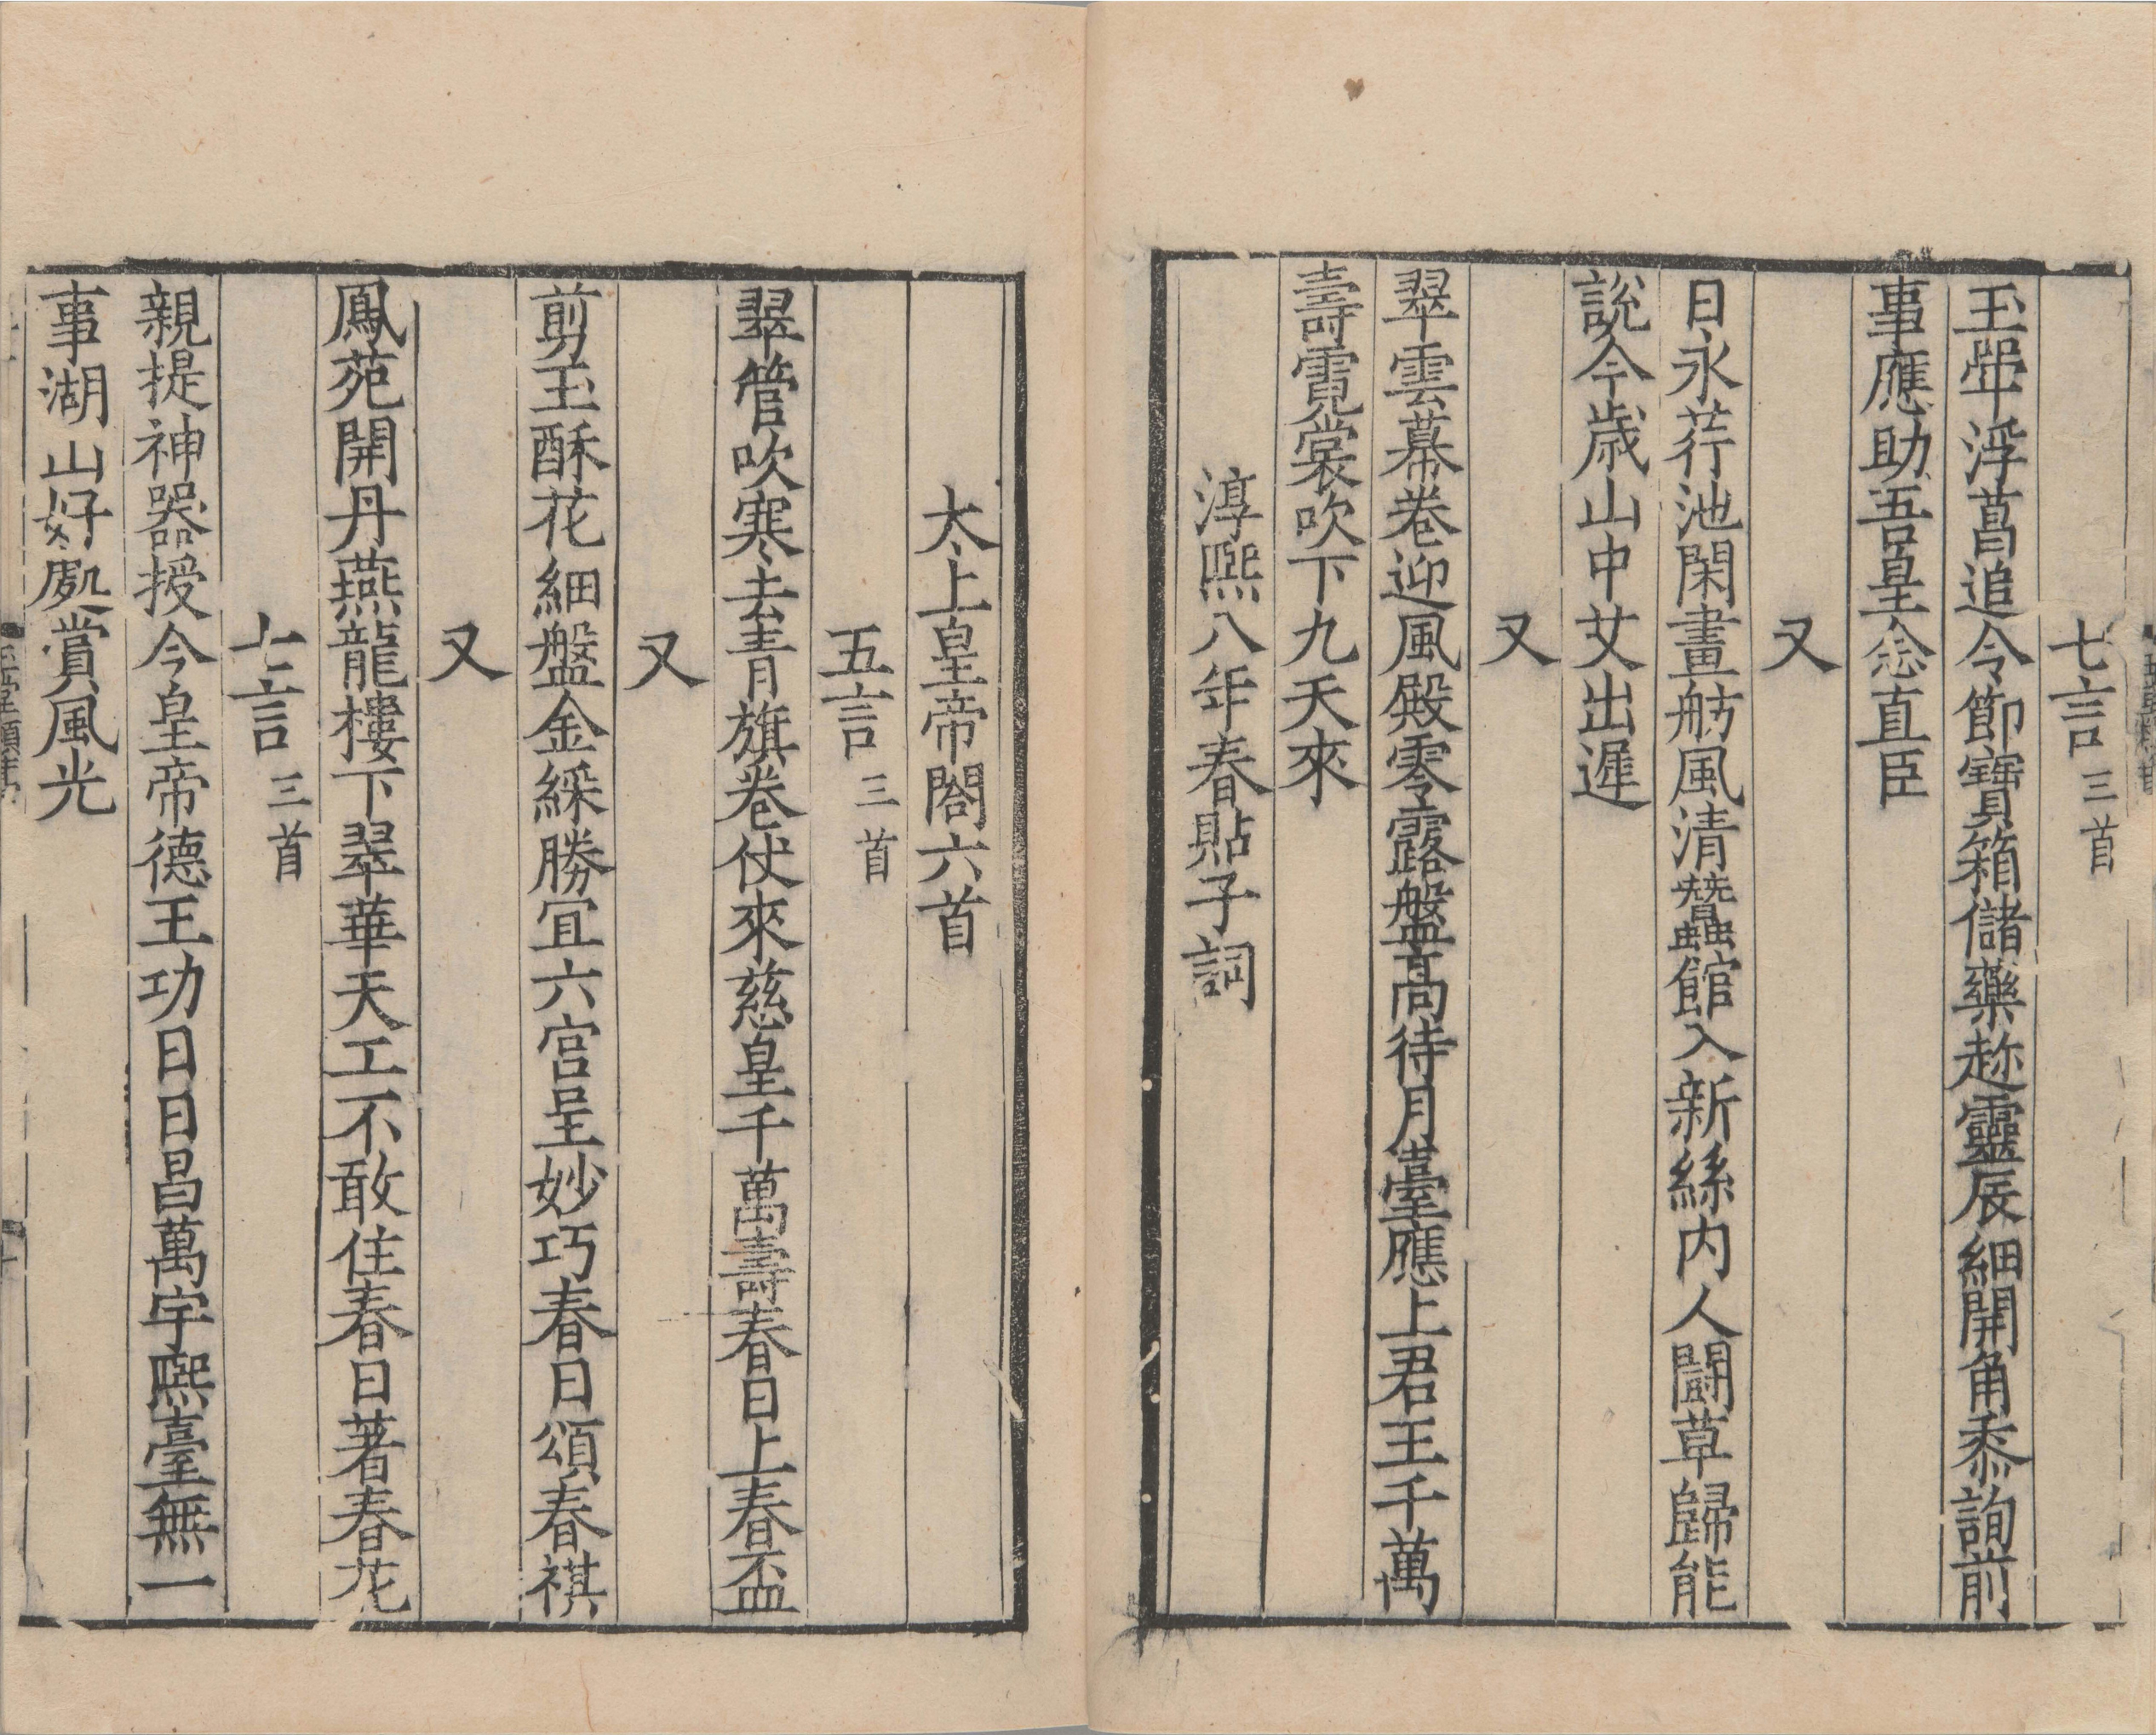 七言三首
玉斝浮菖追令節寶箱儲藥趂靈辰細開角黍詢前
事應助吾皇念直臣
又
日永荇池閑畫舫風清蠶館入新絲内人鬬草歸能
說今歳山中艾出遲
又
翠雲幕卷迎風殿零露盤髙待月臺應上君王千萬
壽霓裳吹下九天來
淳熙八年春貼子詞
太上皇帝閤六首
五言三首
翠管吹寒去青旗卷仗來慈皇千萬壽春日上春盃
又
剪玉酥花細盤金綵勝宜六宫呈妙巧春日頌春祺
又
鳳苑開丹燕龍樓下翠華天工不敢住春日著春花
七言三首
親提神器授今皇帝德王功日日昌萬宇熙臺無一
事湖山好處賞風光